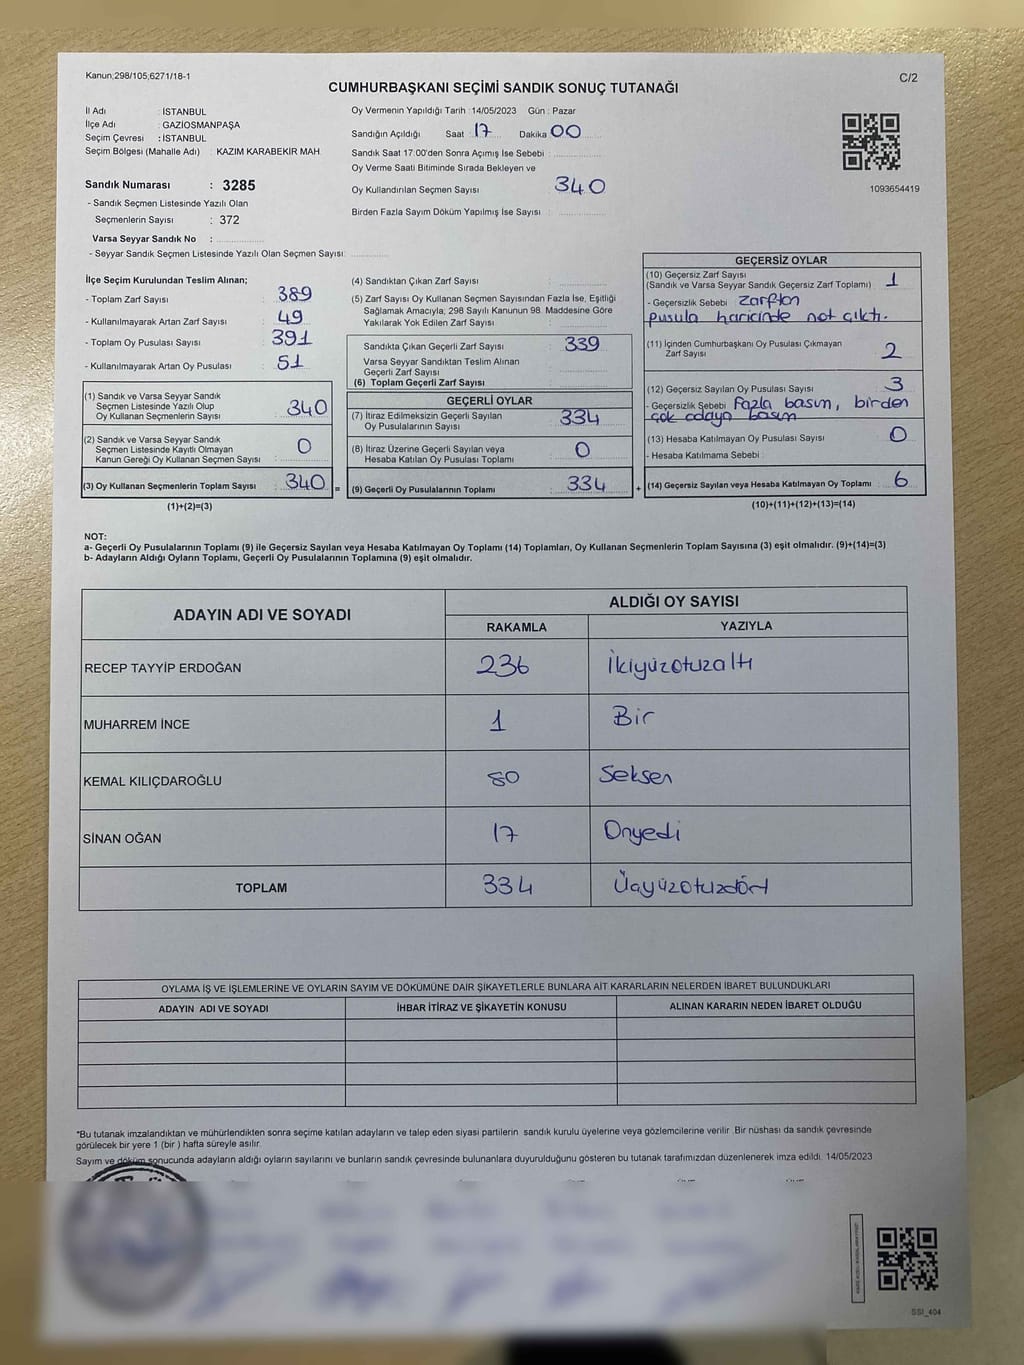 Kanun;298/105;6271/18-1
C/2
CUMHURBAŞKANI SEÇİMİ SANDIK SONUÇ TUTANAĞI
İl Adı : İSTANBUL
İlçe Adı : GAZİOSMANPAŞA
Seçim Çevresi : İSTANBUL
Seçim Bölgesi (Mahalle Adı) : KAZIM KARABEKİR MAH.
Sandık Numarası : 3285
- Sandık Seçmen Listesinde Yazılı Olan
Seçmenlerin Sayısı : 372
Varsa Seyyar Sandık No :
- Seyyar Sandık Seçmen Listesinde Yazılı Olan Seçmen Sayısı:
Oy Vermenin Yapıldığı Tarih : 14/05/2023 Gün : Pazar
Sandığın Açıldığı Saat 17 Dakika 00
Sandık Saat 17:00'den Sonra Açımış İse Sebebi :
Oy Verme Saati Bitiminde Sırada Bekleyen ve
Oy Kullandırılan Seçmen Sayısı : 340
Birden Fazla Sayım Döküm Yapılmış İse Sayısı :
1093654419
İlçe Seçim Kurulundan Teslim Alınan;
- Toplam Zarf Sayısı : 389
- Kullanılmayarak Artan Zarf Sayısı : 49
- Toplam Oy Pusulası Sayısı : 391
- Kullanılmayarak Artan Oy Pusulası : 51
(1) Sandık ve Varsa Seyyar Sandık
Seçmen Listesinde Yazılı Olup
Oy Kullanan Seçmenlerin Sayısı : 340
(2) Sandık ve Varsa Seyyar Sandık
Seçmen Listesinde Kayıtlı Olmayan
Kanun Gereği Oy Kullanan Seçmen Sayısı : 0
(3) Oy Kullanan Seçmenlerin Toplam Sayısı : 340 =
(1)+(2)=(3)
(4) Sandıktan Çıkan Zarf Sayısı :
(5) Zarf Sayısı Oy Kullanan Seçmen Sayısından Fazla İse, Eşitliği
Sağlamak Amacıyla; 298 Sayılı Kanunun 98. Maddesine Göre
Yakılarak Yok Edilen Zarf Sayısı :
Sandıkta Çıkan Geçerli Zarf Sayısı : 339
Varsa Seyyar Sandıktan Teslim Alınan
Geçerli Zarf Sayısı :
(6) Toplam Geçerli Zarf Sayısı :
GEÇERLİ OYLAR
(7) İtiraz Edilmeksizin Geçerli Sayılan
Oy Pusulalarının Sayısı : 334
(8) İtiraz Üzerine Geçerli Sayılan veya
Hesaba Katılan Oy Pusulası Toplamı : 0
(9) Geçerli Oy Pusulalarının Toplamı : 334 +
GEÇERSİZ OYLAR
(10) Geçersiz Zarf Sayısı
(Sandık ve Varsa Seyyar Sandık Geçersiz Zarf Toplamı) : 1
- Geçersizlik Sebebi : Zarftan
pusula haricinde not çıktı.
(11) İçinden Cumhurbaşkanı Oy Pusulası Çıkmayan
Zarf Sayısı : 2
(12) Geçersiz Sayılan Oy Pusulası Sayısı : 3
- Geçersizlik Sebebi : Fazla basım, birden
çok adaya basım
(13) Hesaba Katılmayan Oy Pusulası Sayısı : 0
- Hesaba Katılmama Sebebi :
(14) Geçersiz Sayılan veya Hesaba Katılmayan Oy Toplamı : 6
(10)+(11)+(12)+(13)=(14)
NOT:
a- Geçerli Oy Pusulalarının Toplamı (9) ile Geçersiz Sayılan veya Hesaba Katılmayan Oy Toplamı (14) Toplamları, Oy Kullanan Seçmenlerin Toplam Sayısına (3) eşit olmalıdır. (9)+(14)=(3)
b- Adayların Aldığı Oyların Toplamı, Geçerli Oy Pusulalarının Toplamına (9) eşit olmalıdır.
ADAYIN ADI VE SOYADI ALDIĞI OY SAYISI
RAKAMLA YAZIYLA
RECEP TAYYİP ERDOĞAN 236 İkiyüzotuzaltı
MUHARREM İNCE 1 Bir
KEMAL KILIÇDAROĞLU 80 Seksen
SİNAN OĞAN 17 Onyedi
TOPLAM 334 Üçyüzotuzdört
OYLAMA İŞ VE İŞLEMLERİNE VE OYLARIN SAYIM VE DÖKÜMÜNE DAİR ŞİKAYETLERLE BUNLARA AİT KARARLARIN NELERDEN İBARET BULUNDUKLARI
ADAYIN ADI VE SOYADI İHBAR İTİRAZ VE ŞİKAYETİN KONUSU ALINAN KARARIN NEDEN İBARET OLDUĞU
*Bu tutanak imzalandıktan ve mühürlendikten sonra seçime katılan adayların ve talep eden siyasi partilerin sandık kurulu üyelerine veya gözlemcilerine verilir. Bir nüshası da sandık çevresinde
görülecek bir yere 1 (bir) hafta süreyle asılır.
Sayım ve döküm sonucunda adayların aldığı oyların sayılarını ve bunların sandık çevresinde bulunanlara duyurulduğunu gösteren bu tutanak tarafımızdan düzenlenerek imza edildi. 14/05/2023
SSI_404